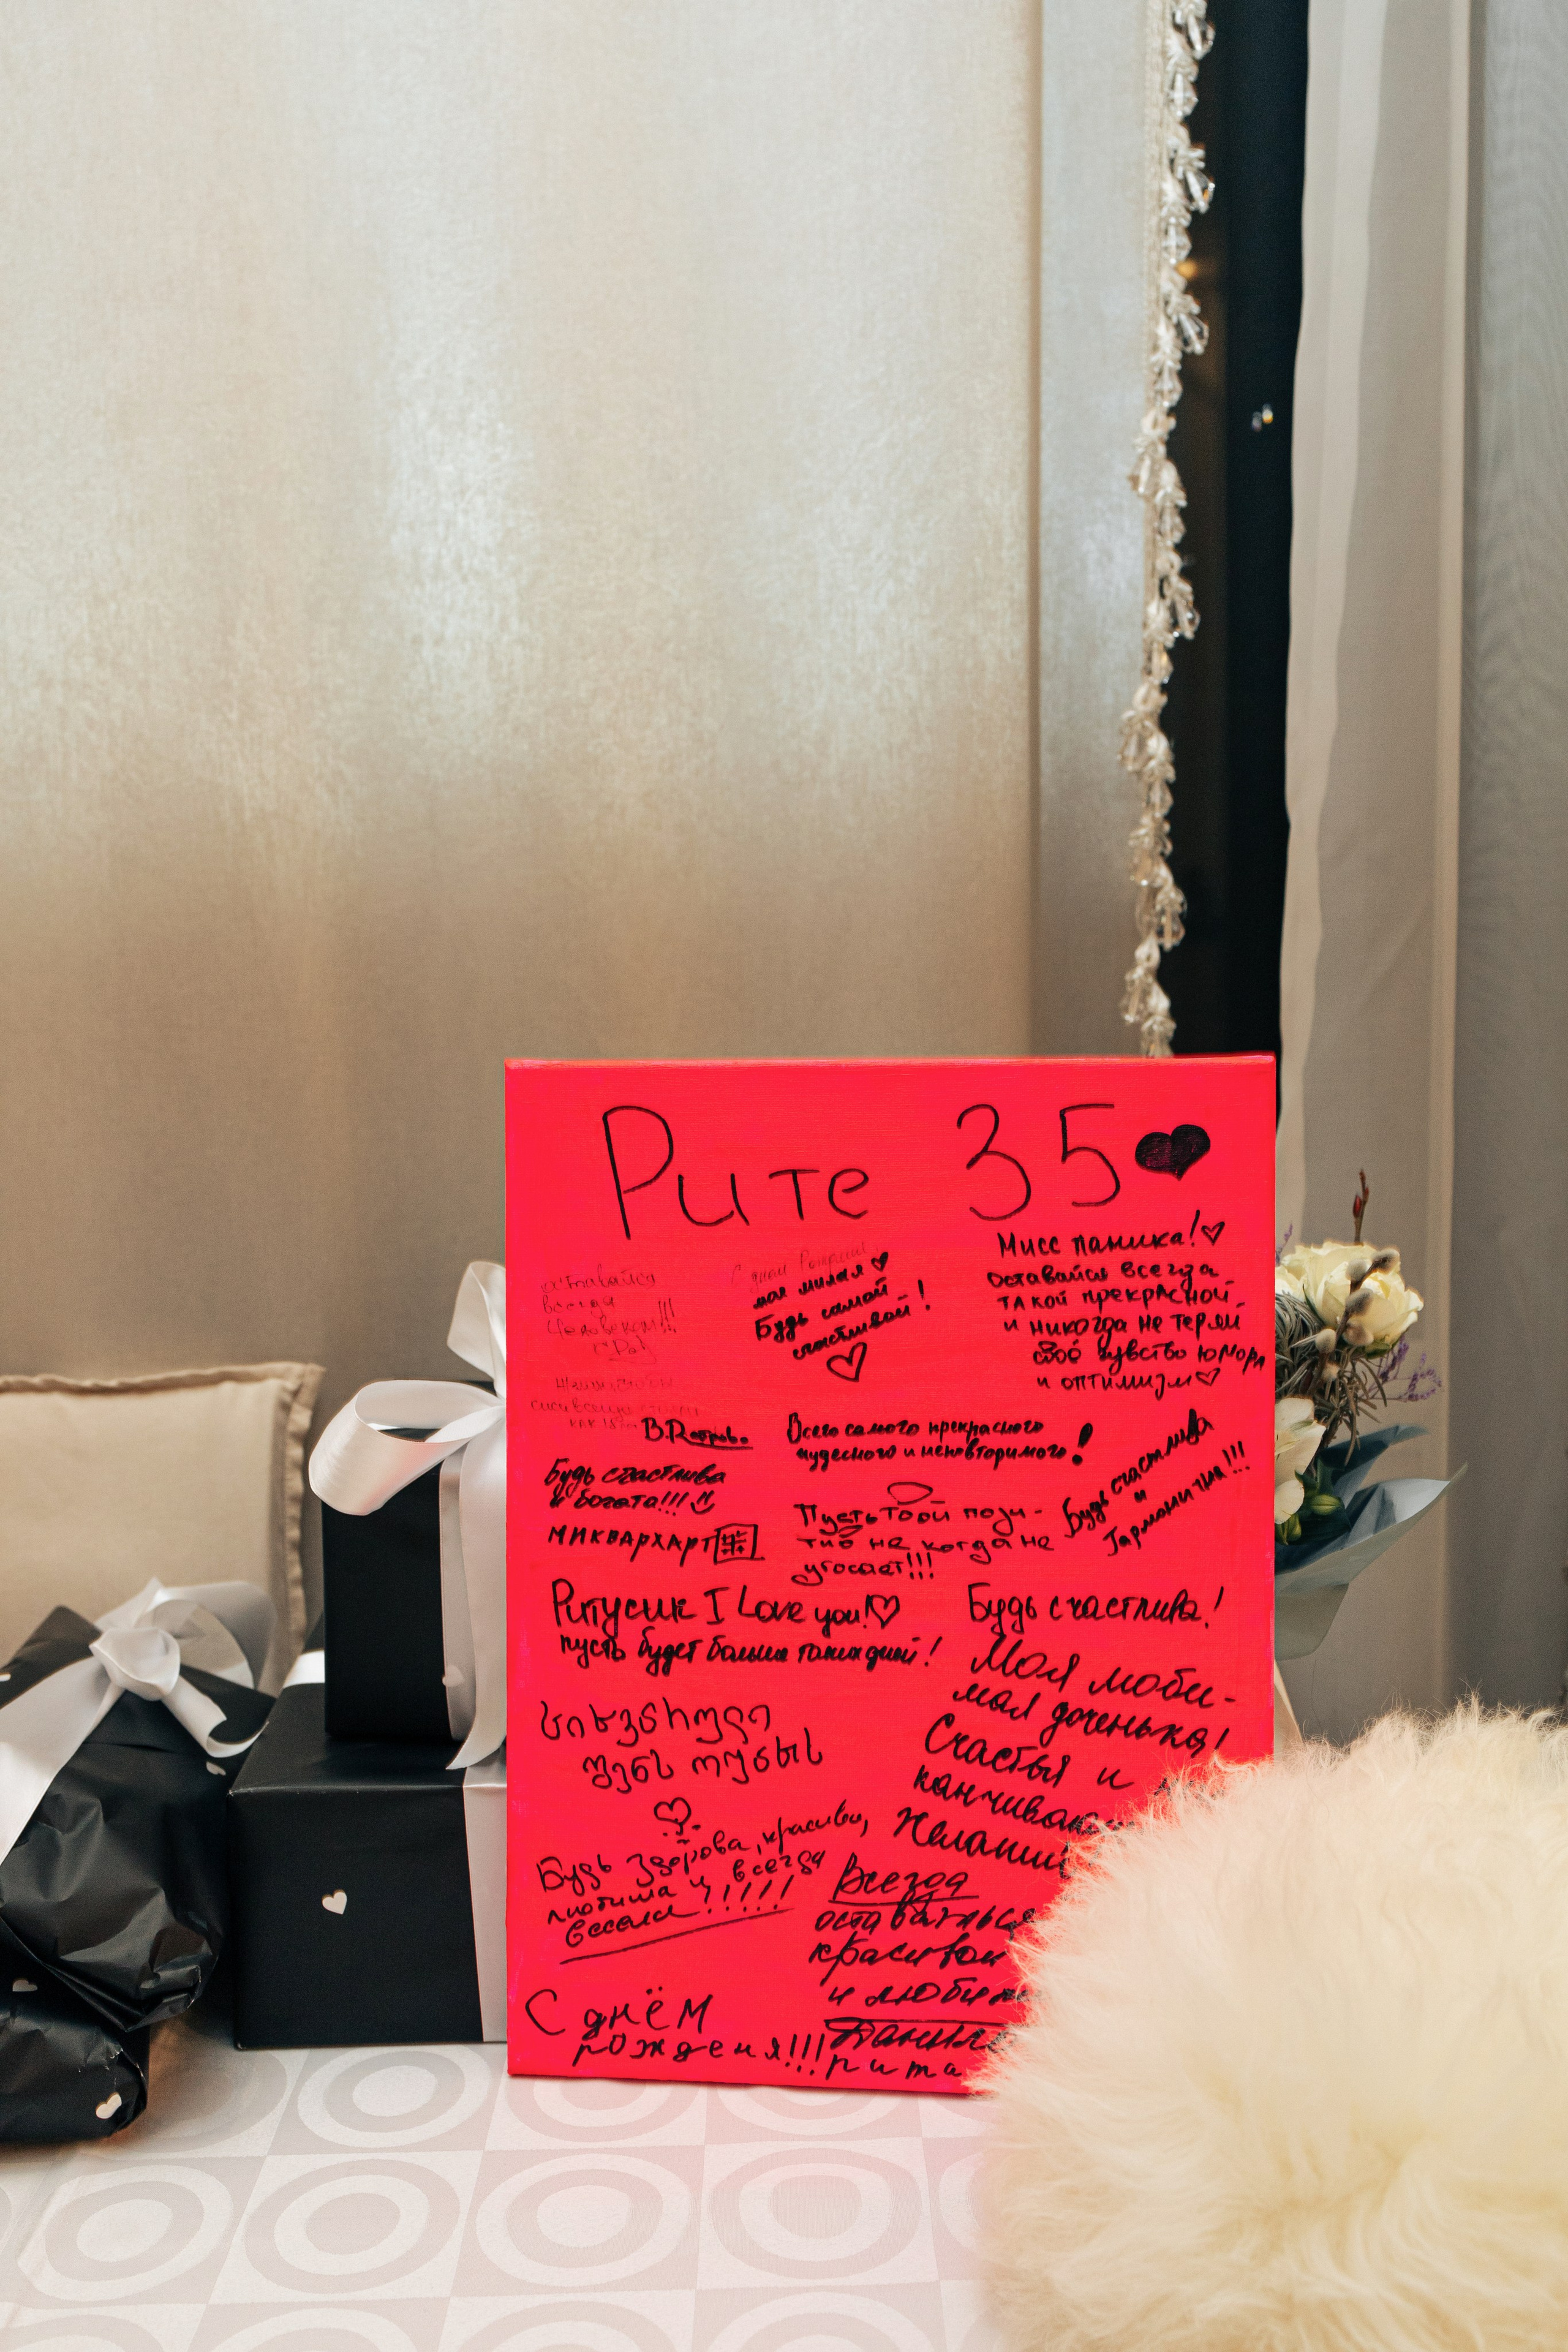 Рите 35
оставайся
всегда
Человеком!!!
С днём Рождения
моя милая
Будь самой
счастливой!
Мисс паника!
Оставайся всегда
такой прекрасной
и никогда не теряй
своё чувство юмора
и оптимизм
как
В.
Всего самого прекрасного
чудесного и неповторимого!
Будь счастлива
и богата!!!
МИКВАРХАР
Пусть твой пози-
тив не когда не
угосает!!!
Будь счастлива
и
Гармонична!!!
Ритусик I Love you!
пусть будет больше таких дней!
Будь счастлива!
Моя люби-
мая доченька!
Счастья и
Желаний
სიხვარული
შენს ოჯახს
Будь здорова, красива,
любима и всегда
весела!!!!!
Всегда
оставаться
красивой
и любим
С днём
рождения!!!
рита